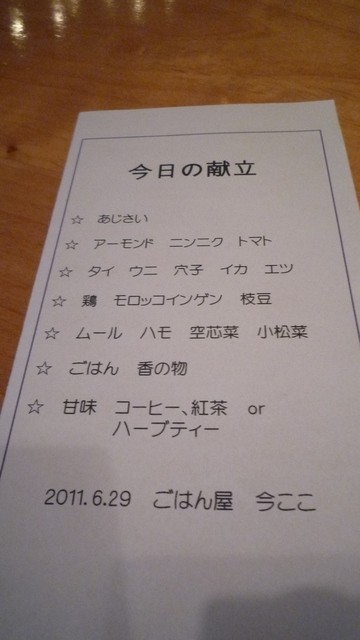 今日の献立
☆ あじさい
☆ アーモンド ニンニク トマト
☆ タイ ウニ 穴子 イカ エツ
☆ 鶏 モロッコインゲン 枝豆
☆ ムール ハモ 空芯菜 小松菜
☆ ごはん 香の物
☆ 甘味 コーヒー、紅茶 or
ハーブティー
2011.6.29 ごはん屋 今ここ